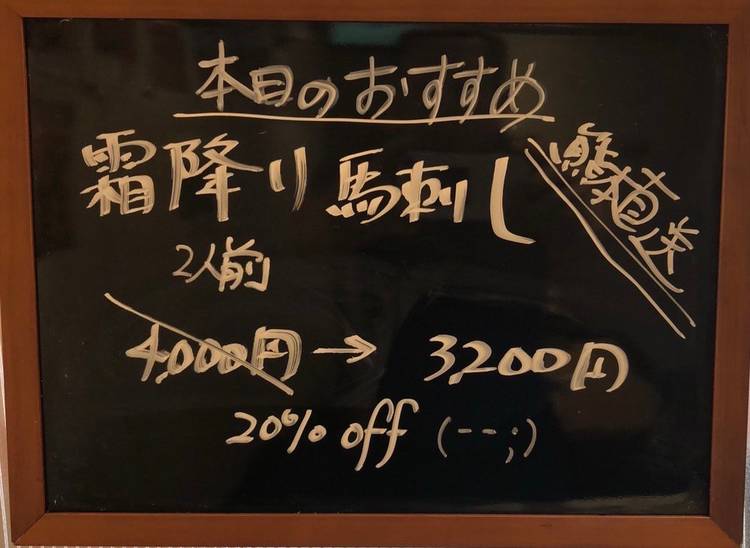 本日のおすすめ
霜降り馬刺し
直送
2人前
4,000円→3,200円
20% off (--;)